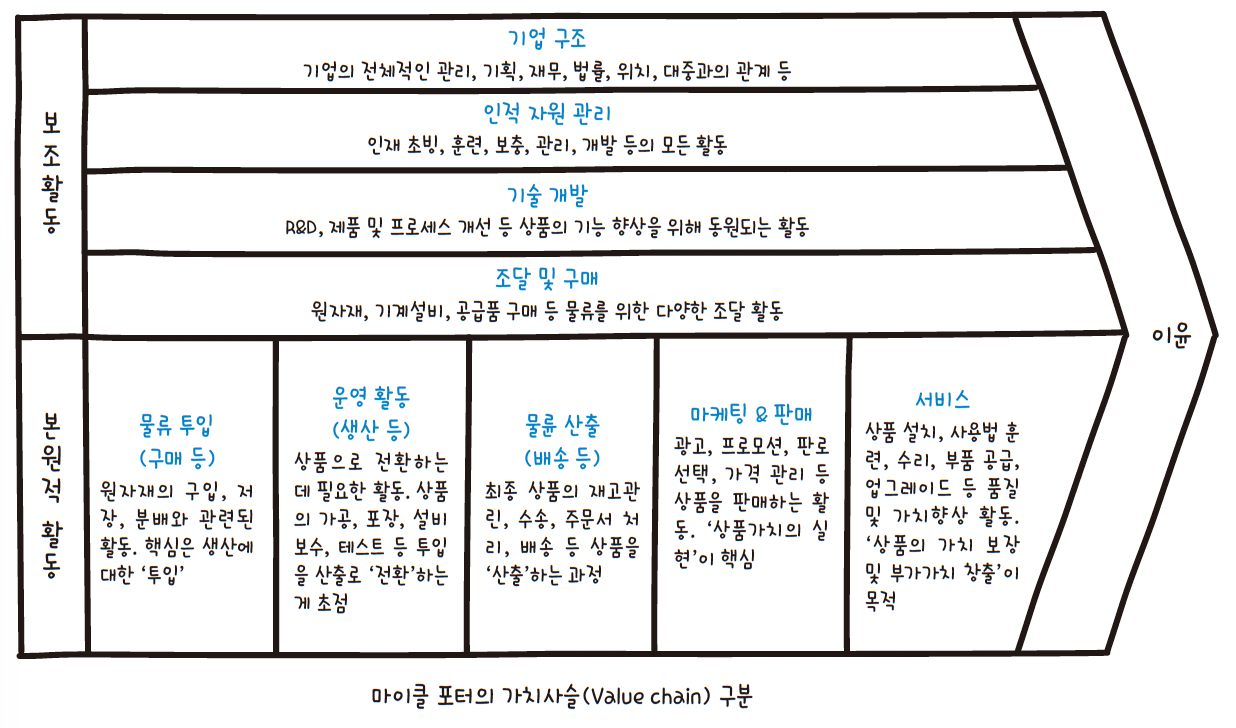 보조활동
기업 구조
기업의 전체적인 관리, 기획, 재무, 법률, 위치, 대중과의 관계 등
인적 자원 관리
인재 초빙, 훈련, 보충, 관리, 개발 등의 모든 활동
기술 개발
R&D, 제품 및 프로세스 개선 등 상품의 기능 향상을 위해 동원되는 활동
조달 및 구매
원자재, 기계설비, 공급품 구매 등 물류를 위한 다양한 조달 활동
이윤
본원적 활동
물류 투입
(구매 등)
원자재의 구입, 저
장, 분배와 관련된
활동. 핵심은 생산에
대한 ‘투입’
운영 활동
(생산 등)
상품으로 전환하는
데 필요한 활동. 상품
의 가공, 포장, 설비
보수, 테스트 등 투입
을 산출로 ‘전환’하는
게 초점
물륜 산출
(배송 등)
최종 상품의 재고관
린, 수송, 주문서 처
리, 배송 등 상품을
‘산출’하는 과정
마케팅 & 판매
광고, 프로모션, 판로
선택, 가격 관리 등
상품을 판매하는 활
동. ‘상품가치의 실
현’이 핵심
서비스
상품 설치, 사용법 훈
련, 수리, 부품 공급,
업그레이드 등 품질
및 가치향상 활동.
‘상품의 가치 보장
및 부가가치 창출’이
목적
마이클 포터의 가치사슬(Value chain) 구분